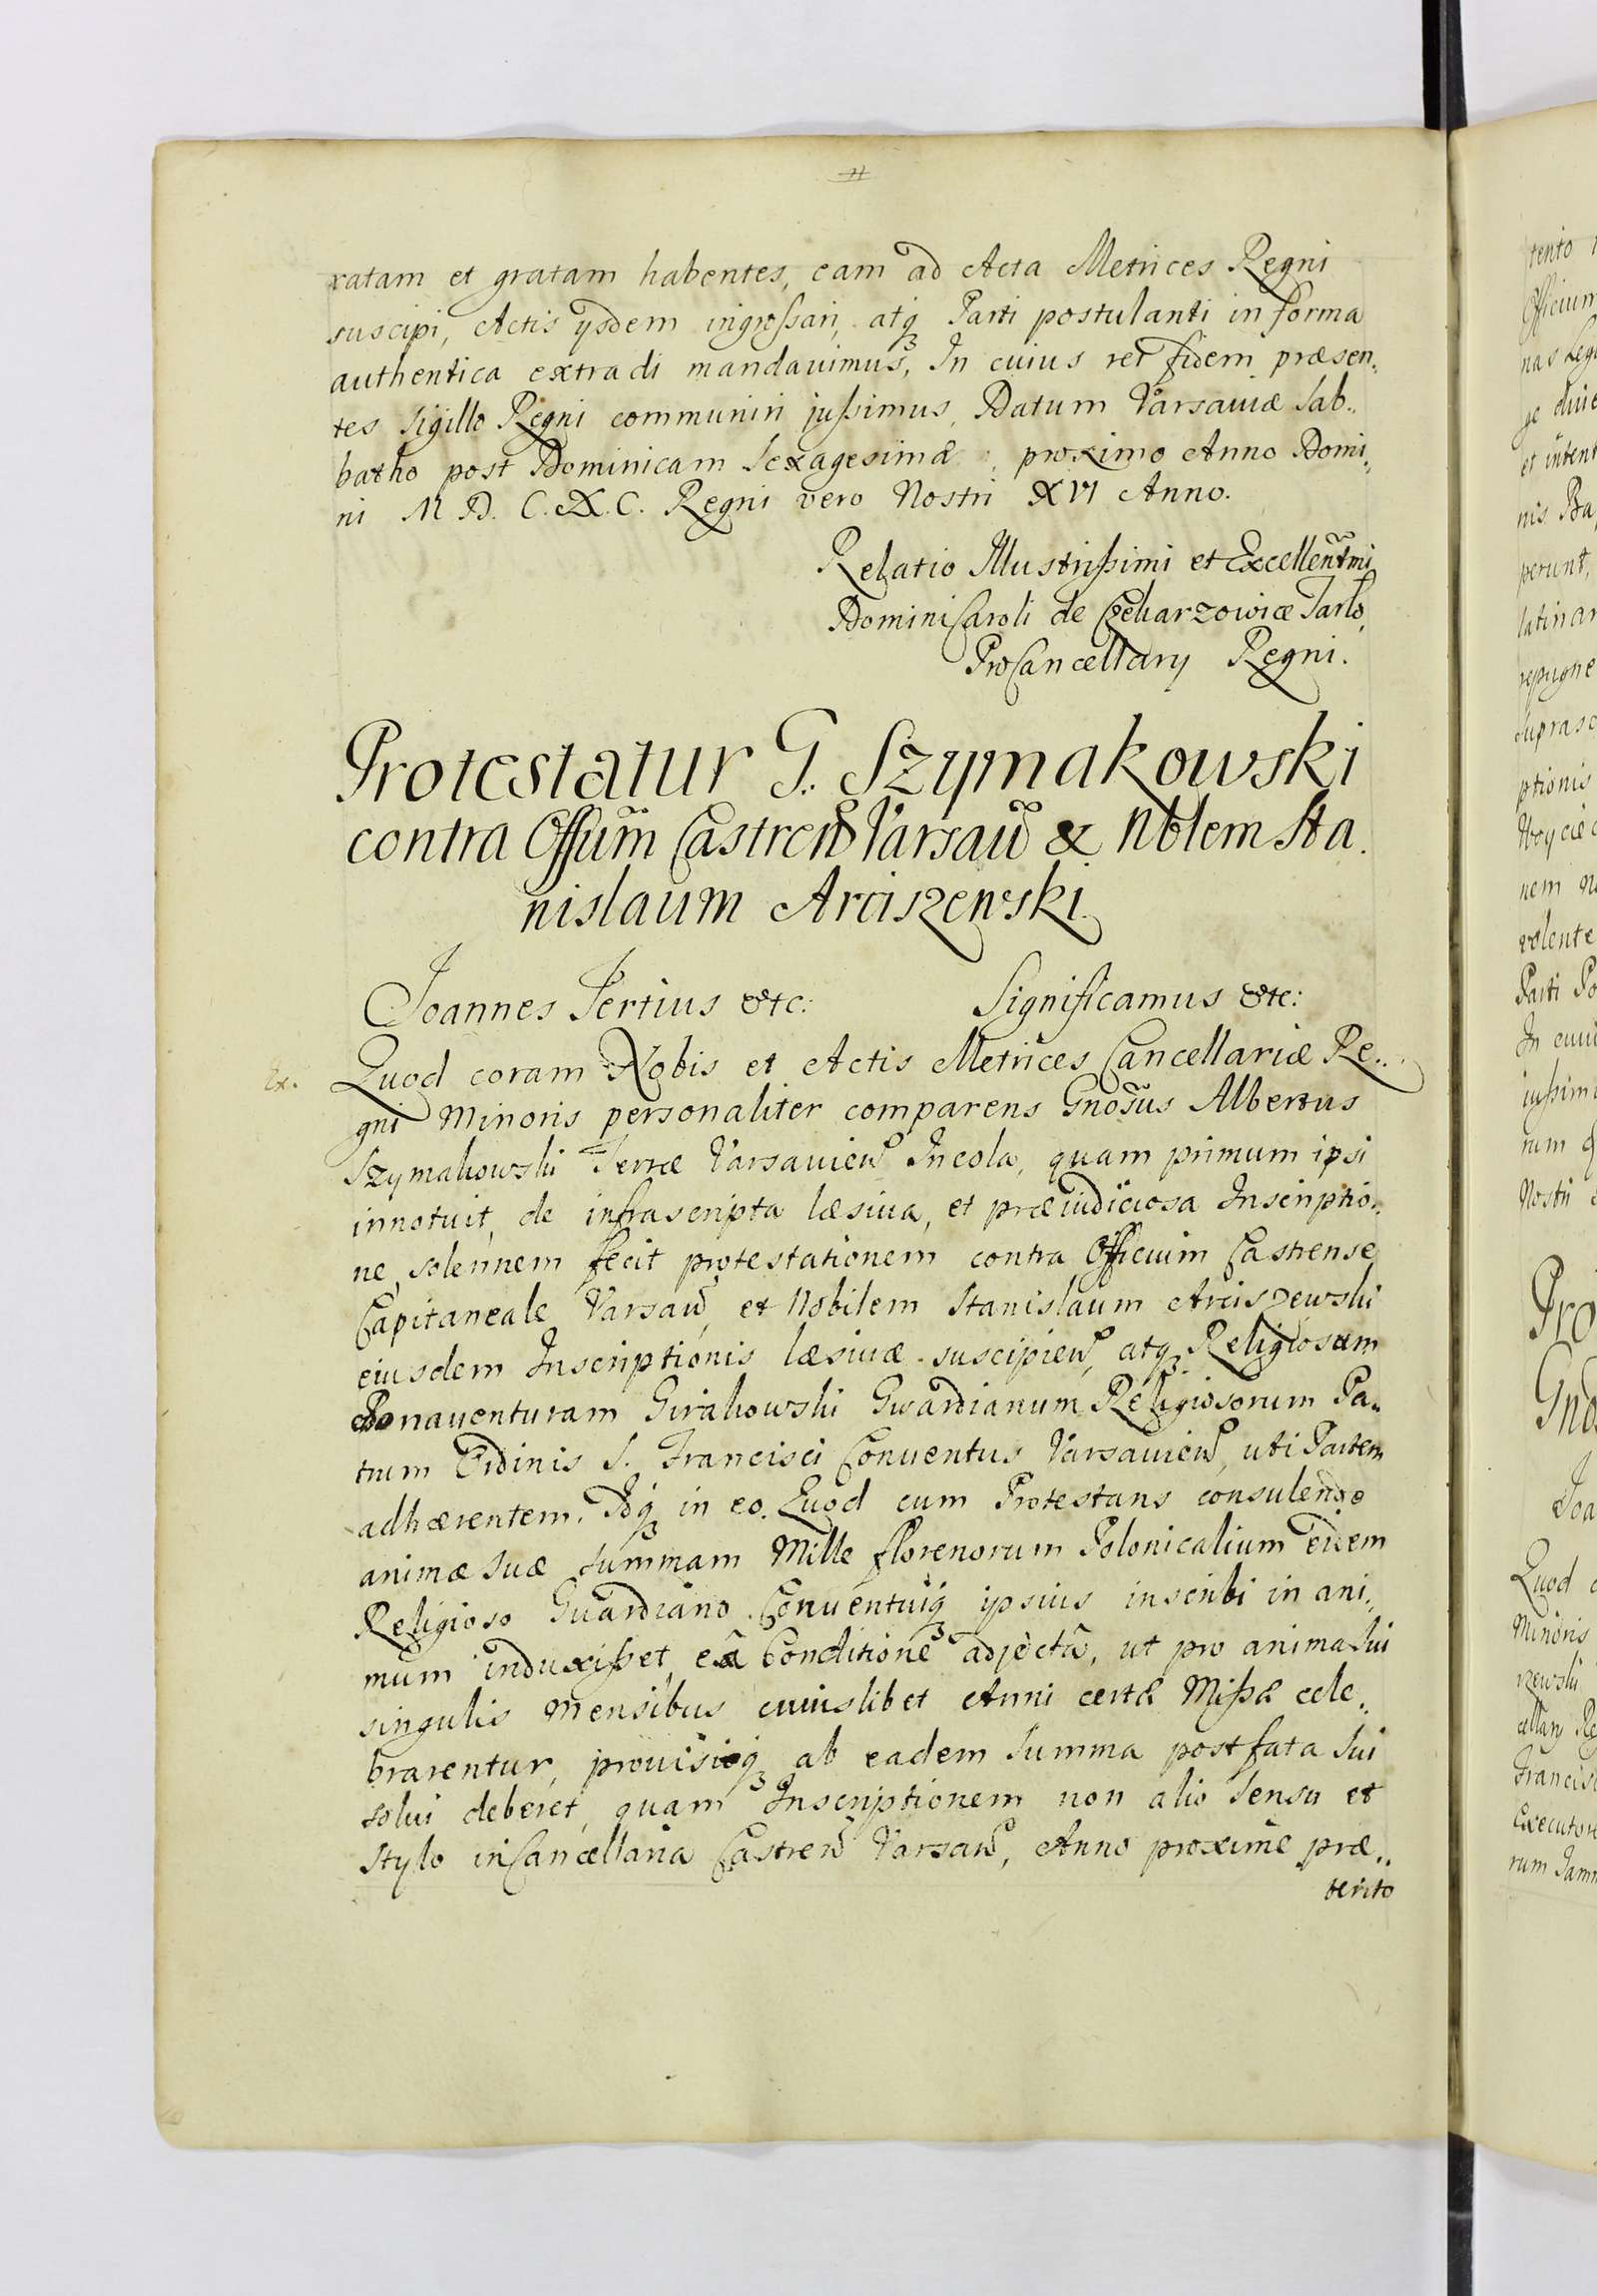 ratam et gratam habentes, eam ad Acta Metrices Regni
suscipi, Actis ijsdem ingroſsari, atq₃ Parti postulanti in forma
authentica extradi mandauimus, In cuius rei fidem præsen„
tes Sigillo Regni communiri juſsimus, Datum Varsauiæ Sab„
batho post Dominicam Sexagesimæ proximo Anno Domi„
ni M D. C. X. C. Regni vero Nostri XVI Anno.
Relatio Illustriſsimi et Excellent̃mi
Domini Caroli de Czekarzowice Tarło
ProCancellarij Regni.
Protestatur G. Szymakowski
contra Offium̃ Castren̄ Varsau̅ & Nblem Sta.
nislaum Arciszewski.
Joannes Tertius &tc: Significamus &tc:
Ex. Quod coram Nobis et Actis Metrices Cancellariæ Re„
gni Minoris personaliter comparens Gnosus Albertus
Szymakowski Terræ Varsauien̄ Incola, quam primum ipsi
innotuit, de infrascripta læsiua, et præiudiciosa Inscriptio„
ne, solennem fecit protestationem contra Officium Castrense
Capitaneale Varsau̅, et Nobilem Stanislaum Arciszewski
eiusdem Inscriptionis læsiuæ suscipien̄, atq₃ Religiosum
Bonauenturam Girakowski Gwardianum Religiosorum Pa„
trum Ordinis S. Francisci Conuentus Varsauien̄, uti Partem
adhærentem. Idq₃ in eo. Quod cum Protestans consulendo
animæ suæ summam Mille florenorum Polonicalium eidem
Religioso Guardiano Conuentuiq₃ ipsius inscribi in ani„
mum induxiſset, eâ Conditione adjectâ, ut pro anima Sui
singulis mensibus cuiuslibet Anni certæ Miſsæ cele„
brarentur, prouisioq₃ ab eadem Summa post fata Sui
solui deberet, quam Inscriptionem non alio Sensu et
Stylo in Cancellaria Castren̄ Varsau̅, Anno proxime præ„
terito